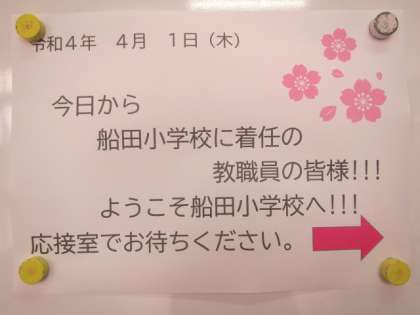 令和４年　４月　１日（木）
今日から
船田小学校に着任の
教職員の皆様!!!
ようこそ船田小学校へ!!!
応接室でお待ちください。